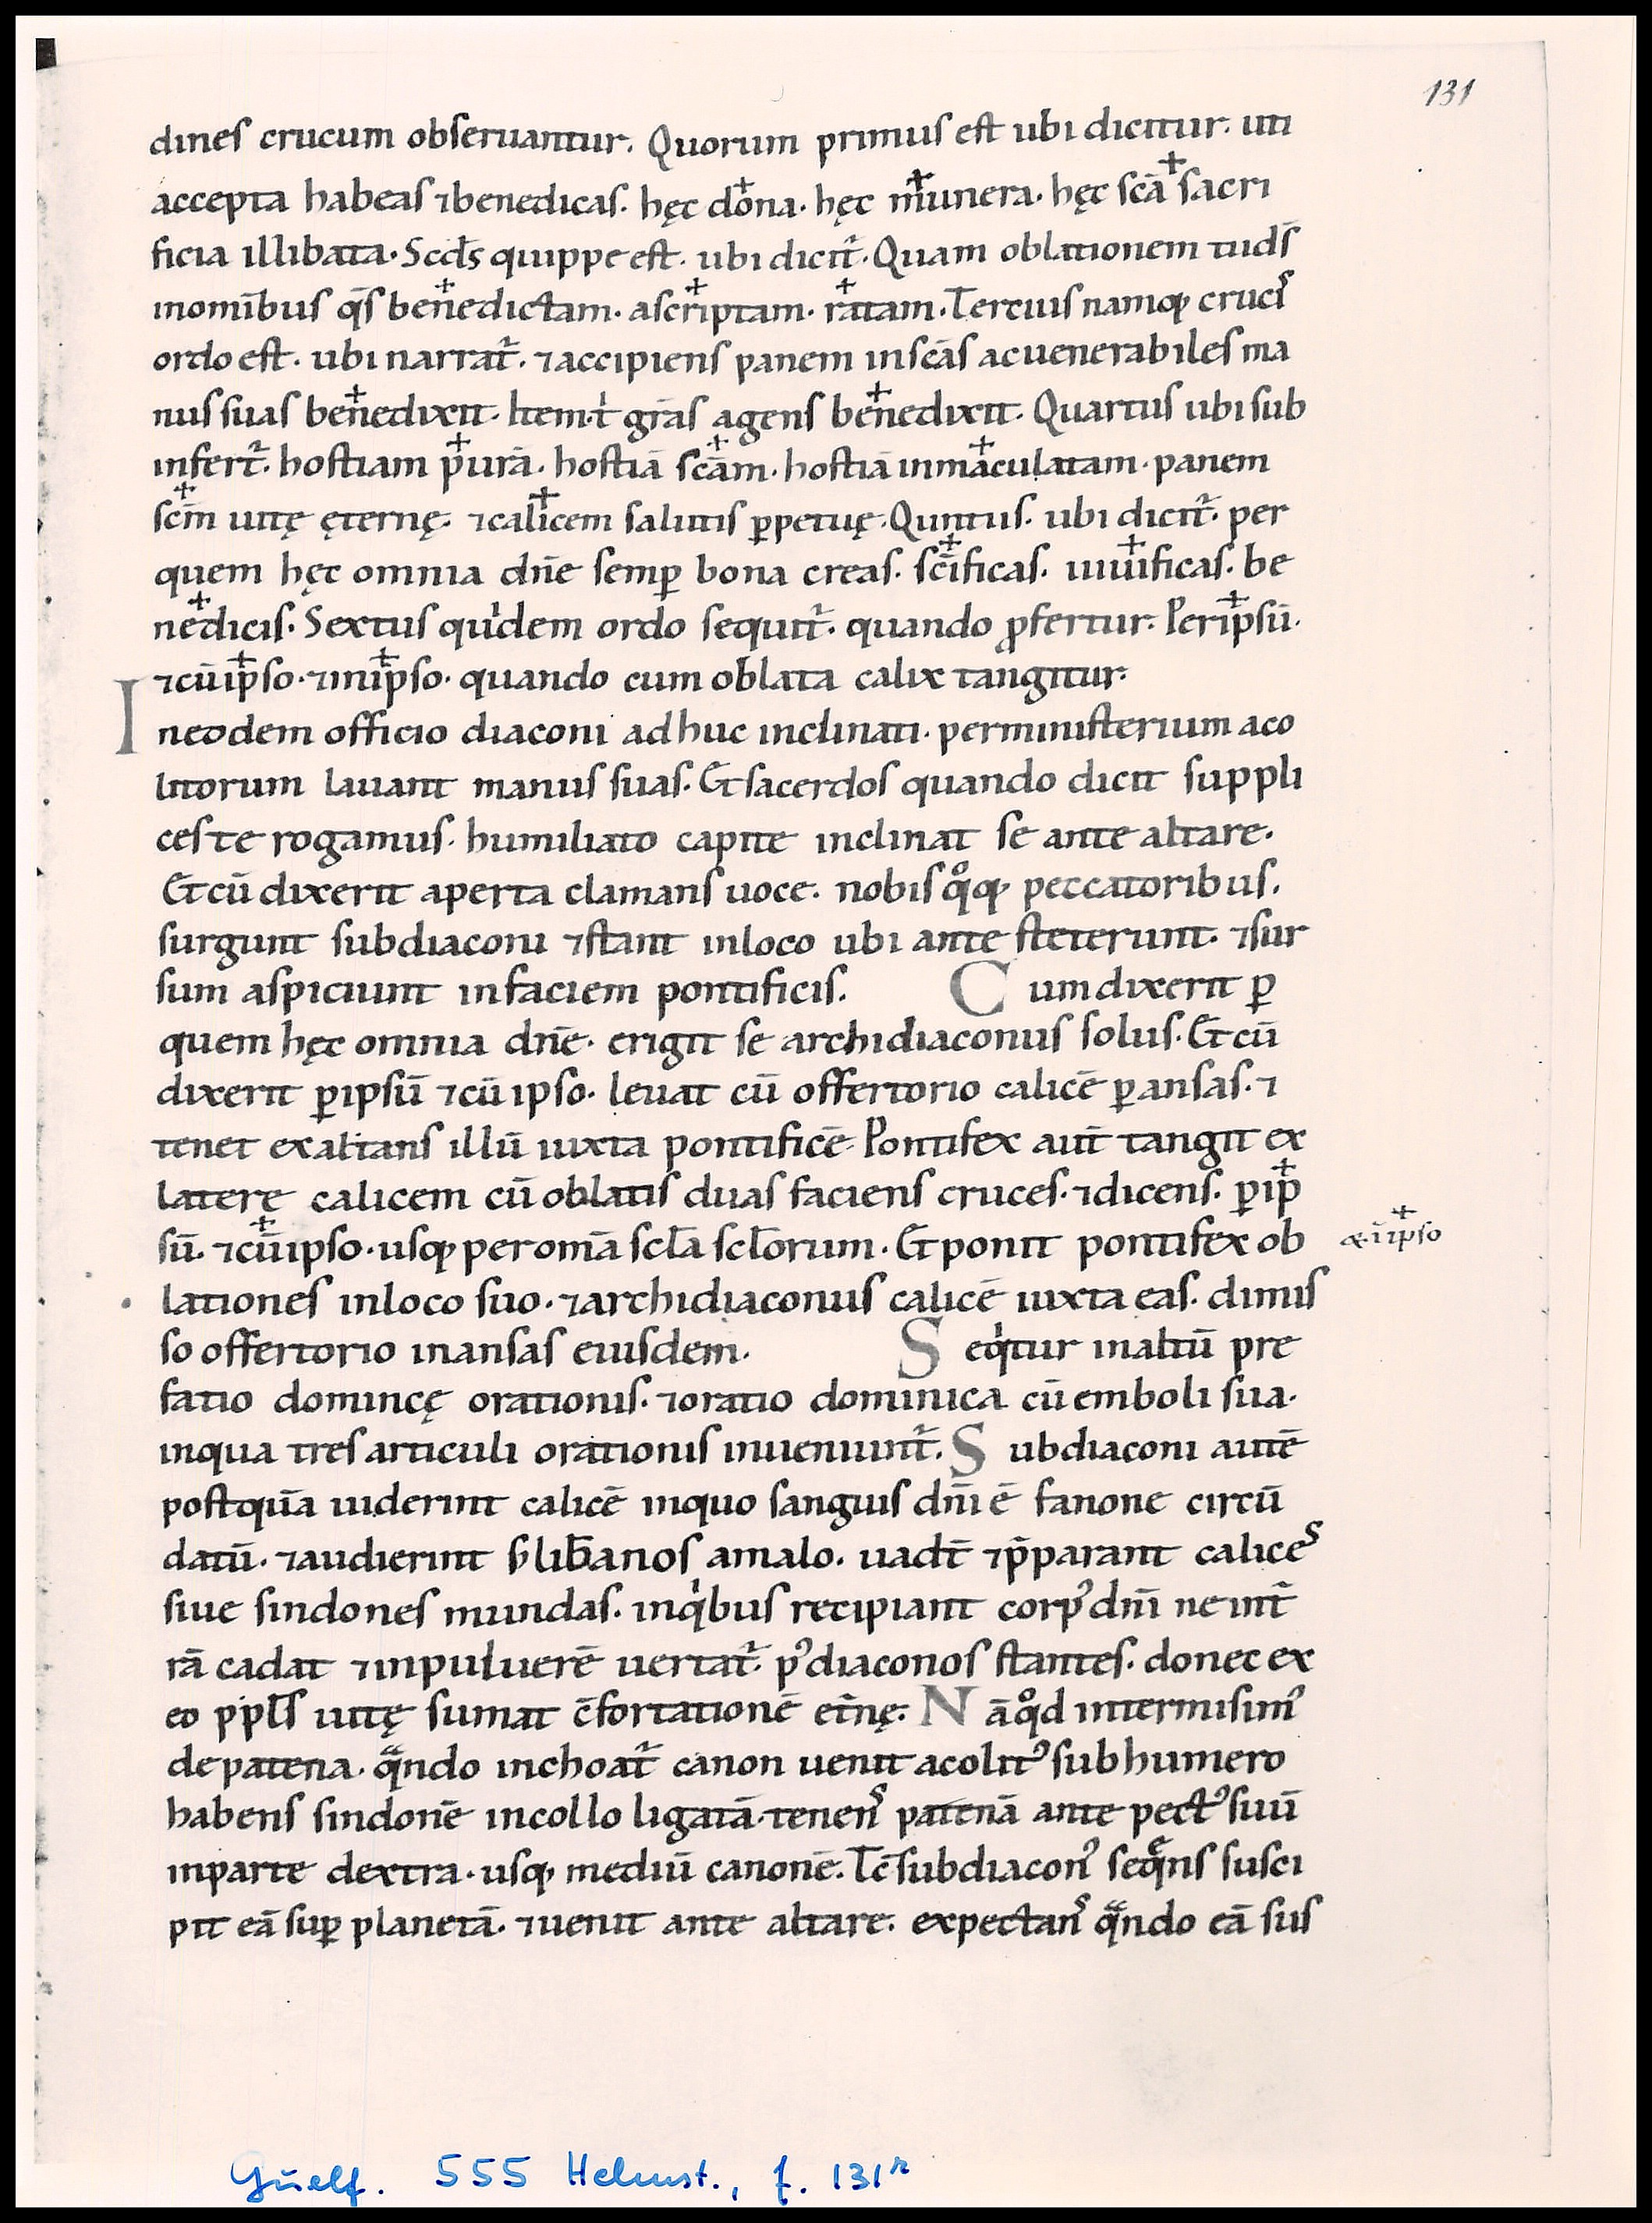 131
dineſ crucum obſeruantur. Quorum primuſ eſt ubi dicitur. uti
accepta habeaſ ⁊benedicaſ. hęc do+na. hęc m+unera. hęc ſcā+ ſacri
ficia illibata. Scd̄s quippe eſt. ubi dicit᷑. Quam oblationem tud̄ſ
inomībus q̄ſ ben+edictam. aſcr+iptam. ra+tam. Terciuſ namq; cruciſ
ordo eſt. ubi narrat᷑. ⁊accipienſ panem inſcāſ acuenerabileſ ma
nuſ ſuaſ ben+edixit. Item+ gr̄aſ agenſ ben+edixit. Quartuſ ubi ſub
infert᷑. hoſtiam p+urā. hoſtiā ſcā+m. hoſtiā inma+culatam. panem
ſc̄m+ uitę ęternę. ⁊cali+cem ſalutiſ ꝑpetuę. Quntuſ. ubi dicit᷑. per
quem hęc omnia dn̄e ſemꝑ bona creaſ. ſc̄i+ficaſ. uiui+ficaſ. be
ne+diciſ. Sextuſ quidem ordo ſequit᷑. quando ꝓfertur. Perip+ſū.
⁊cūip+ſo. ⁊inip+ſo. quando cum oblata calix tangitur.
Ineodem officio diaconi adhuc inclinati. perminiſterium aco
litorum lauant manuſ ſuaſ. Et ſacerdoſ quando dicit ſuppli
ceſ te rogamuſ. humiliato capite inclinat ſe ante altare.
Et cū dixerit aperta clamanſ uoce. nobiſ qͦq; peccatoribuſ.
ſurgunt ſubdiaconi ⁊ſtant inloco ubi ante ſteterunt. ⁊ſur
ſum aſpiciunt infaciem pontificiſ. Cum dixerit ꝑ
quem hęc omnia dn̄e. erigit ſe archidiaconuſ ſoluſ. Et cū
dixerit ꝑipſū ⁊cū ipſo. leuat cū offertorio calicē ꝑanſaſ. ⁊
tenet exaltanſ illū iuxta pontificē. Pontifex aut̄ tangit ex
latere calicem cū oblatiſ duaſ facienſ cruceſ. ⁊dicenſ. ꝑip+
ſū. ⁊cū+ipſo. uſq; peromā ſcl̄a ſcl̄orum. Et ponit pontifex ob
&ī ip+ſo
lationeſ inloco ſuo. ⁊archidiaconuſ calicē iuxta eaſ. dimiſ
ſo offertorio inanſaſ eiuſdem. Seqͥtur inaltū pre
fatio domincę orationiſ. ⁊oratio dominica cū emboli ſua.
inqua treſ articuli orationiſ inueniunt᷑. Subdiaconi autē
poſtquā uiderint calicē inquo ſanguiſ dn̄i ē fanone circū
datū. ⁊audierint ſꝉ lib̄anoſ amalo. uadt̄ ⁊p̄parant caliceſ
ſiue ſindoneſ mundaſ. inqͥbuſ recipiant corp᾽ dn̄i ne int̄
rā cadat ⁊inpuluerē uertat᷑. p᾽diaconoſ ſtanteſ. donec ex
eo ppl̄ſ uitę ſumat c̄fortationē et̄nę. Nāqͦd intermiſim᾽
depatena. qᷓndo inchoat᷑ canon uenit acolit᾽ ſub humero
habenſ ſindonē incollo ligatā. tenenſ patenā ante pect᾽ ſuū
inparte dextra. uſq; mediū canonē. Tc̄ ſubdiacon᾽ ſeqͤnſ ſuſci
pit eā ſuꝑ planetā. ⁊uenit ante altare. expectanſ qᷓndo eā ſuſ
Guelf. 555 Helmst., f. 131r